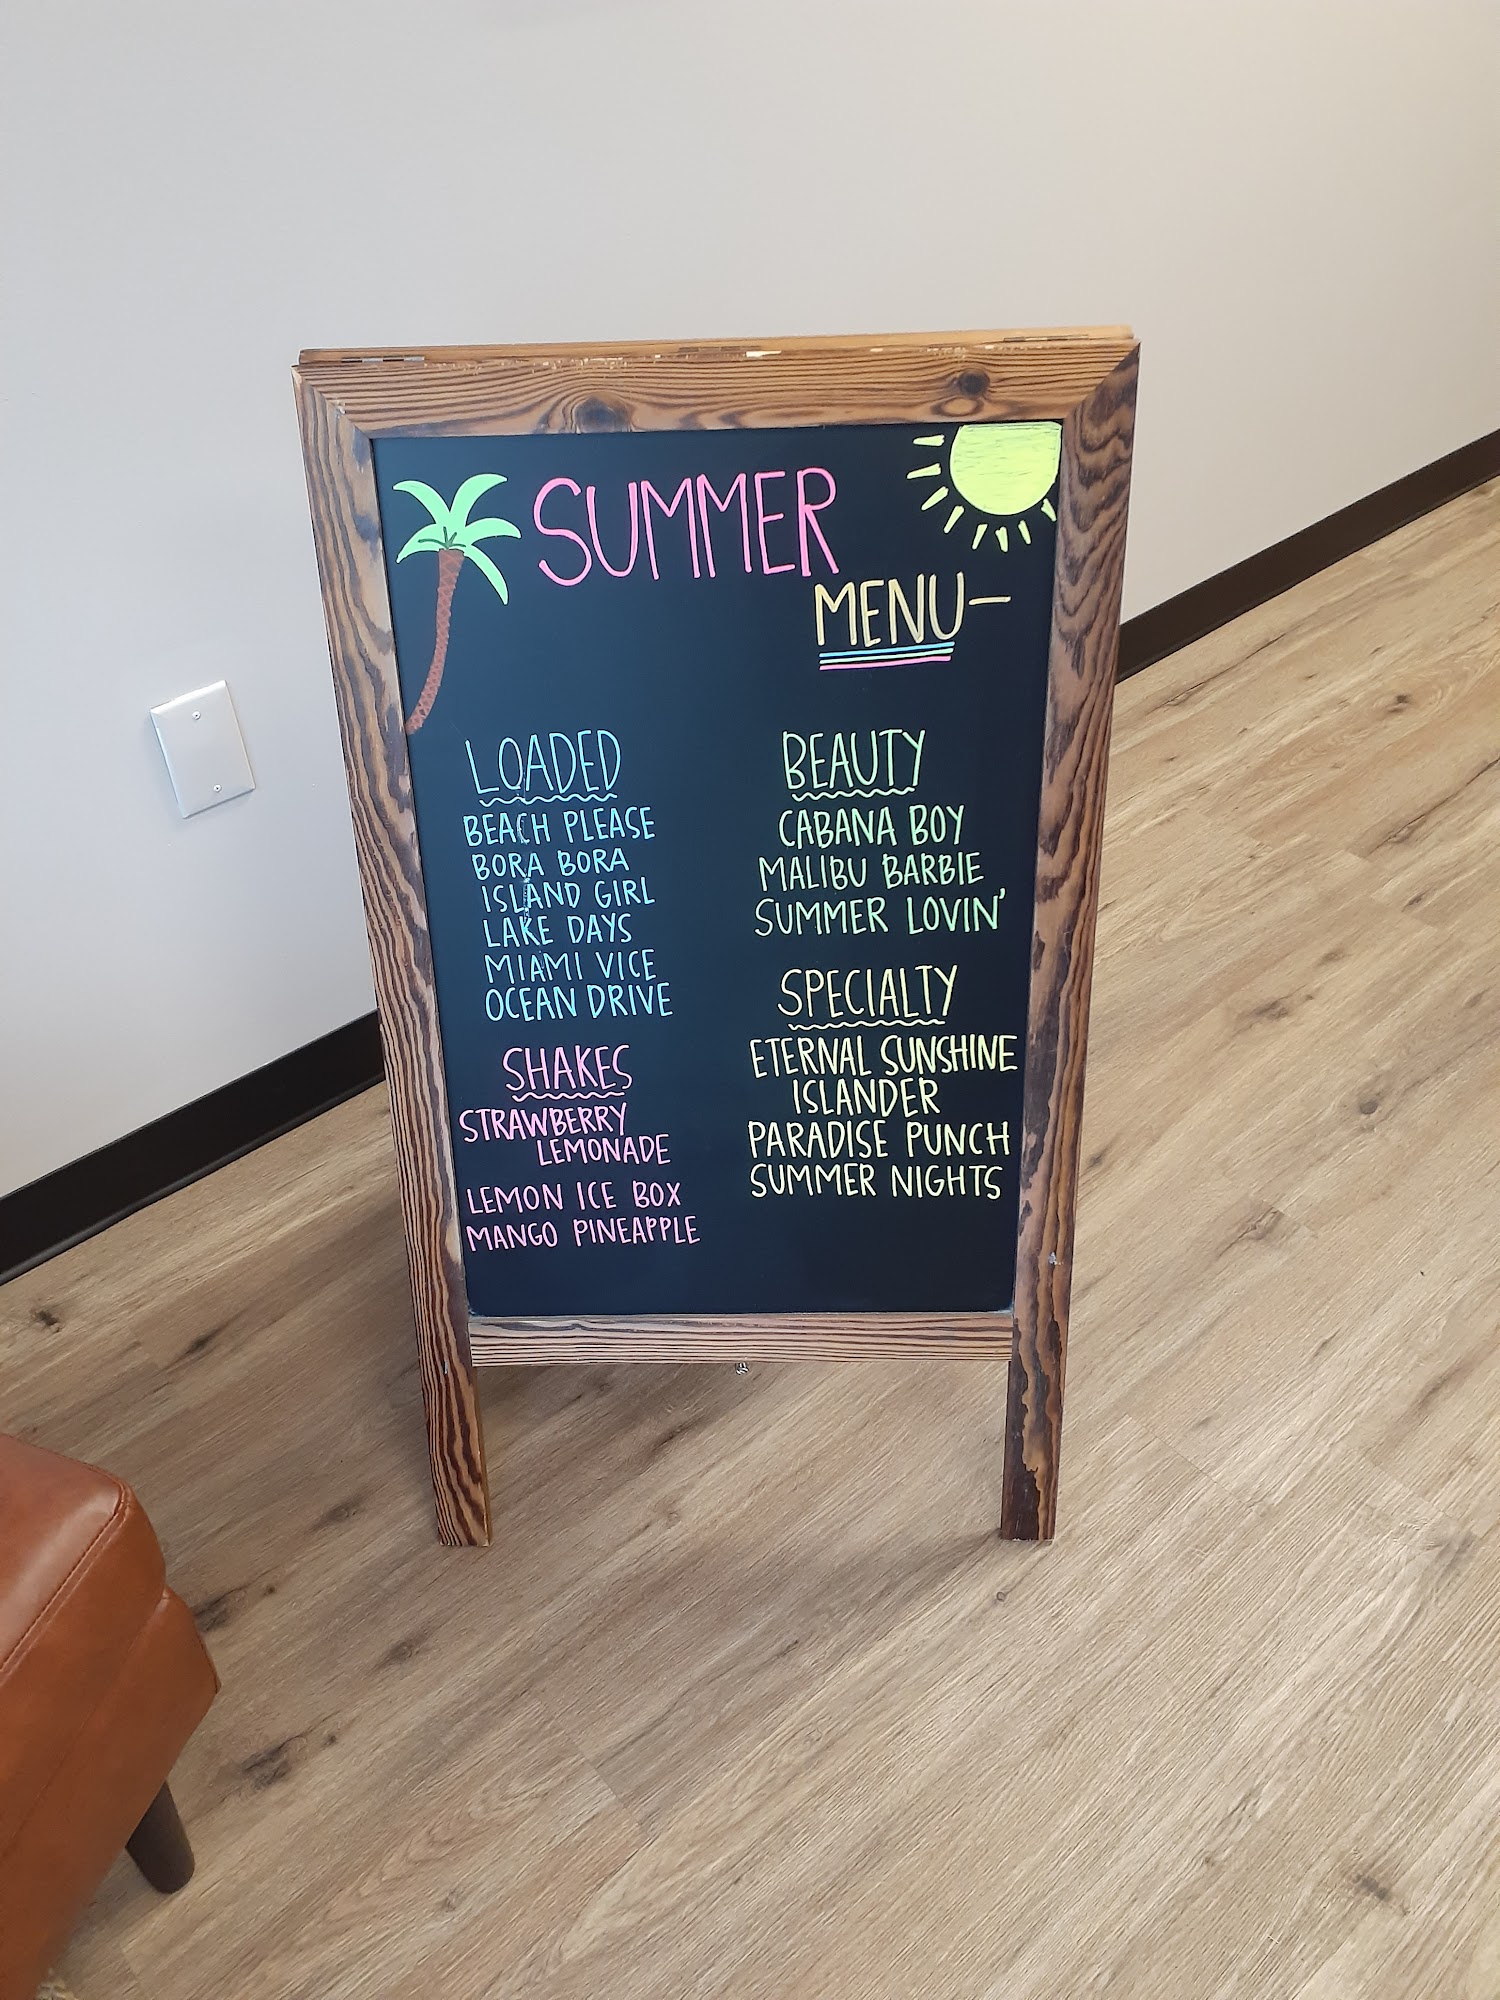 SUMMER
MENU-
LOADED
BEACH PLEASE
BORA BORA
ISLAND GIRL
LAKE DAYS
MIAMI VICE
OCEAN DRIVE
SHAKES
STRAWBERRY
LEMONADE
LEMON ICE BOX
MANGO PINEAPPLE
BEAUTY
CABANA BOY
MALIBU BARBIE
SUMMER LOVIN'
SPECIALTY
ETERNAL SUNSHINE
ISLANDER
PARADISE PUNCH
SUMMER NIGHTS